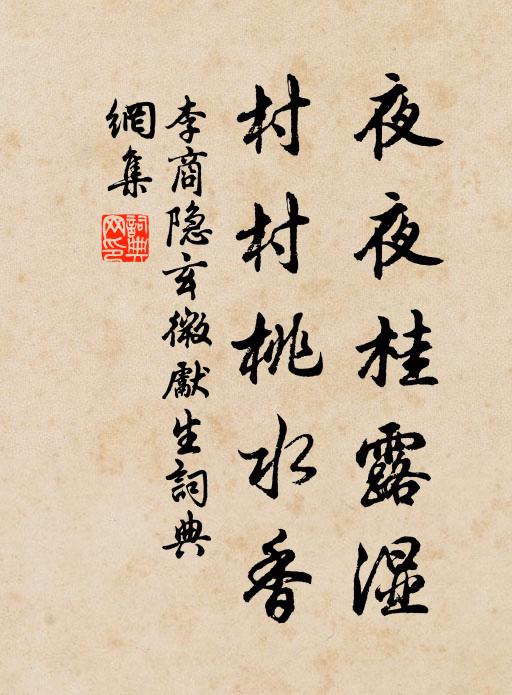 夜夜桂露湿
村村桃水香
李商隐玄微献生詞典
網集
詞典
网印